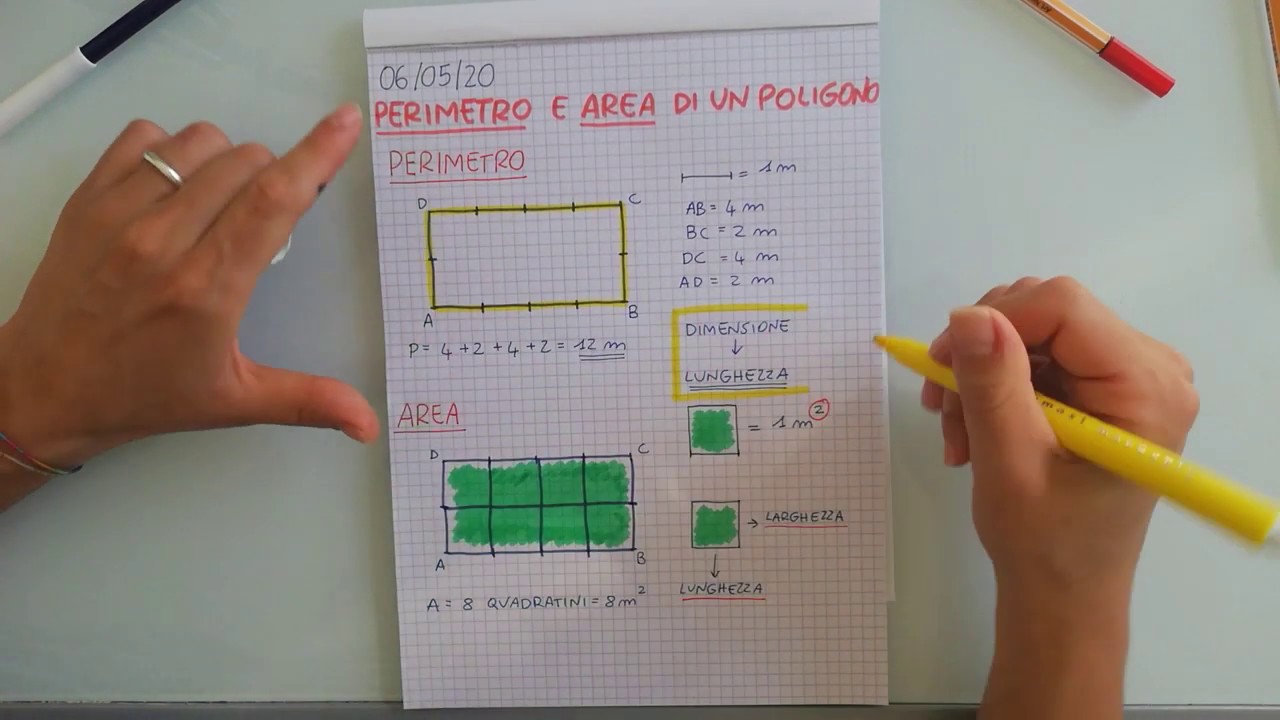 06/05/20
PERIMETRO E AREA DI UN POLIGONO
PERIMETRO
D C
A B
P= 4 +2 +4 +2 = 12 m
= 1 m
AB = 4 m
BC = 2 m
DC = 4 m
AD = 2 m
DIMENSIONE
↓
LUNGHEZZA
AREA
D C
A B
A = 8 QUADRATINI = 8 m²
= 1 m²
→ LARGHEZZA
↓
LUNGHEZZA